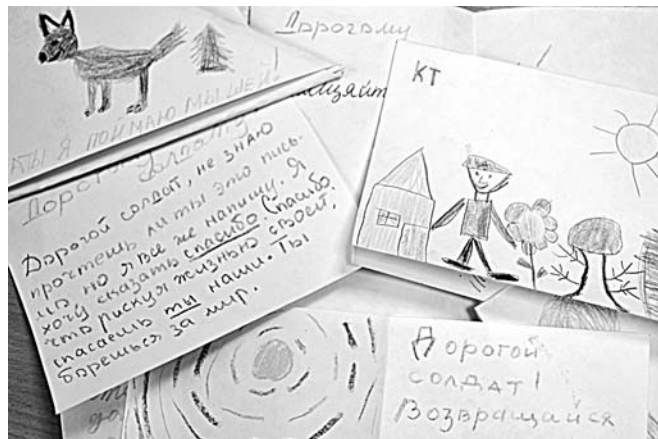 Дорогому
КТ
Я ПОЙМАЮ МЫШЕЙ
Дорогой солдат, не знаю
прочтешь ли ты это пись-
мо но я все же напишу. Я
хочу сказать спасибо. Спасибо,
что рискуя жизнью своей,
спасаешь ты наши. Ты
борешься за мир.
Дорогой
солдат!
Возвращайся